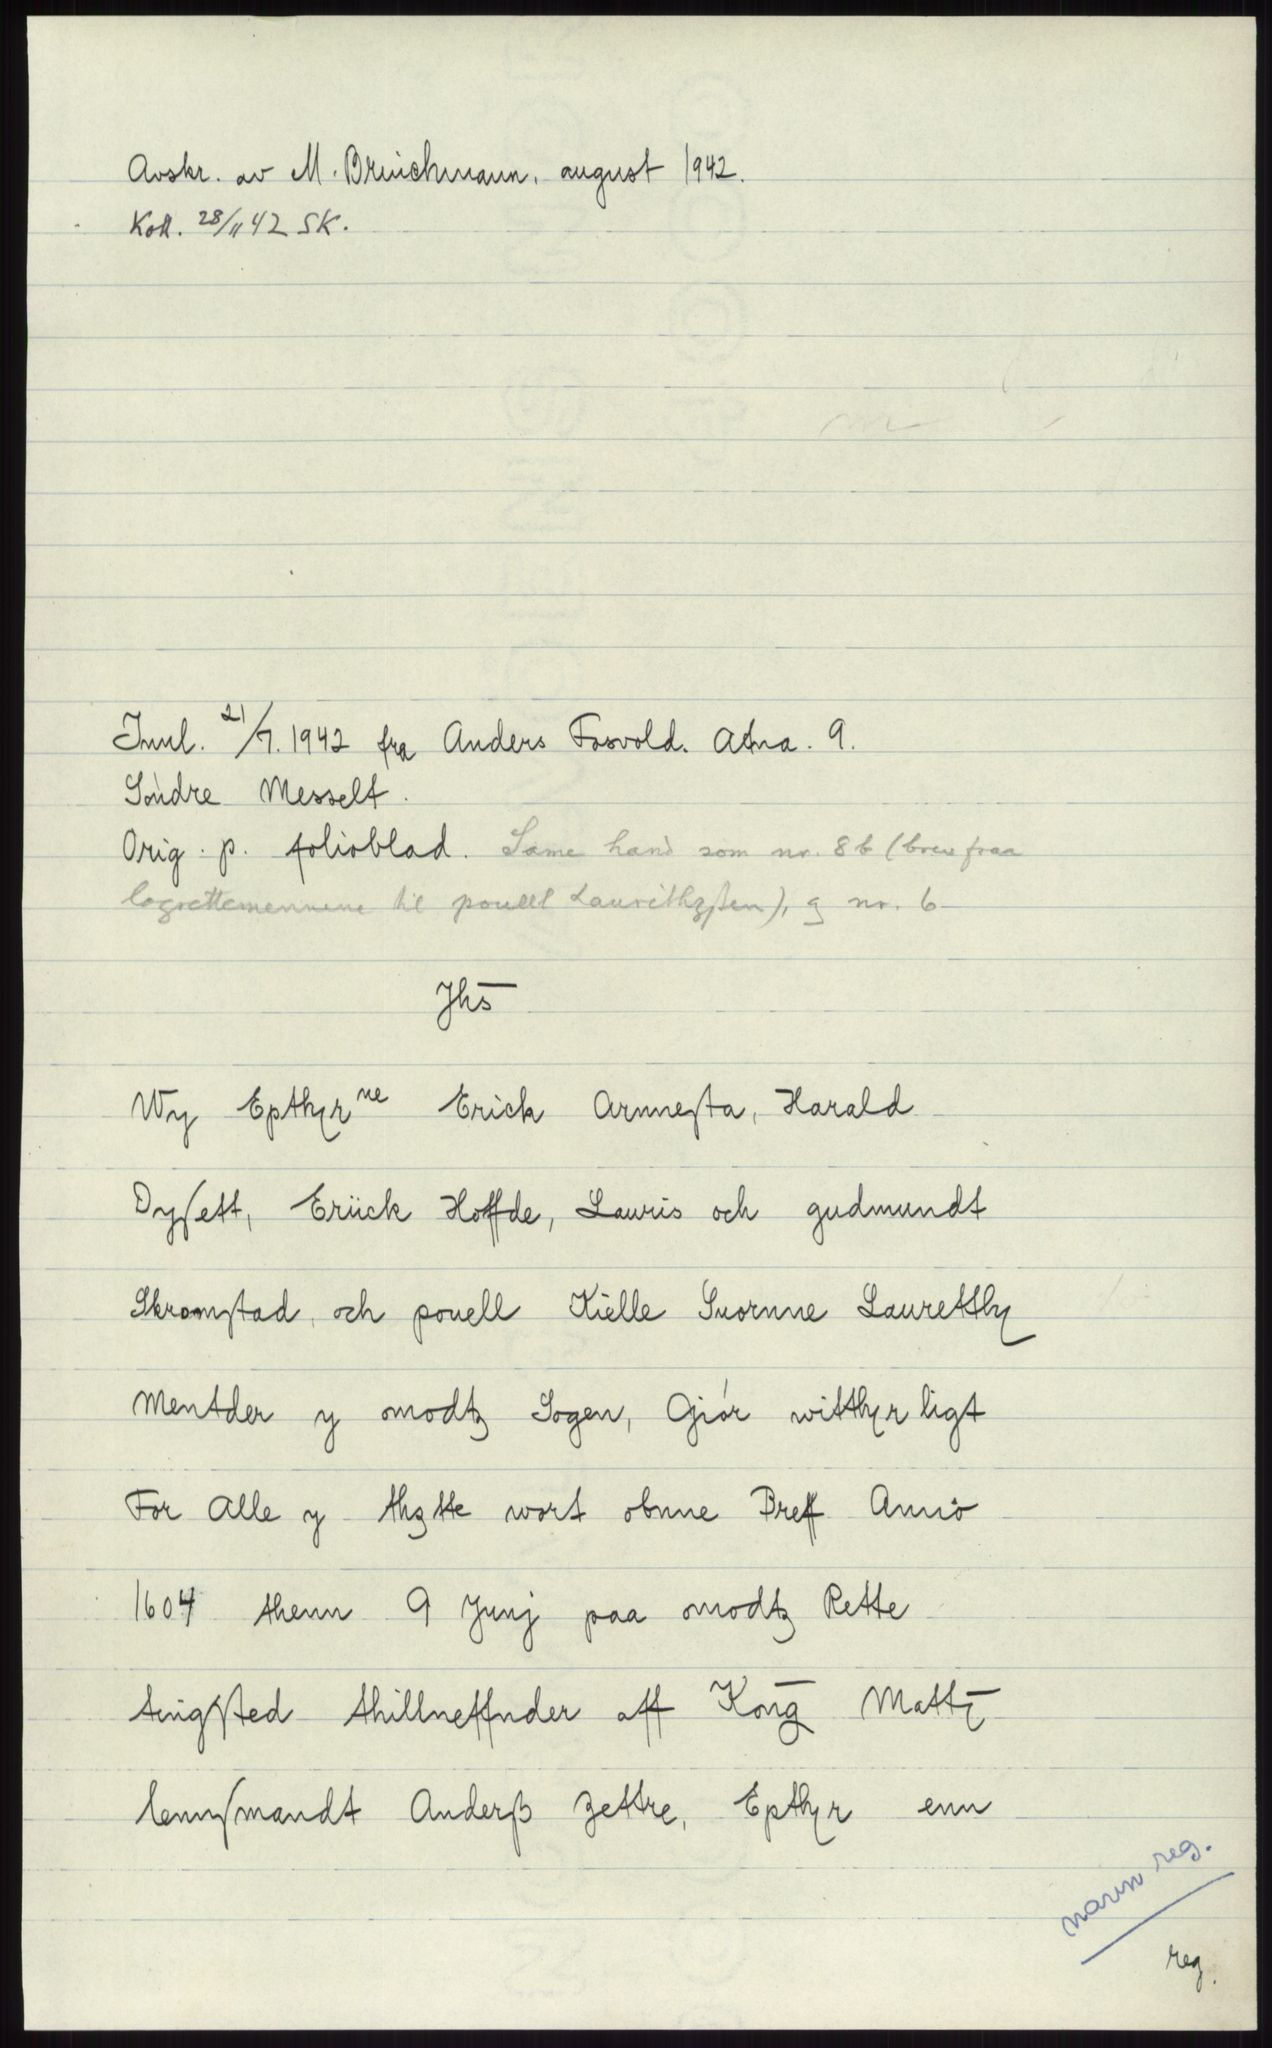 Avskr. av M. Brinchmann, august 1942.
Koll. 28/11 42 SK.
Innl. 21/7. 1942 fra Anders Fosvold. Atna. 9.
Söndre Messelt.
Orig. p. folioblad. Same hand som nr. 8b (brev fraa
lagrettemennene til pouell Laurithzßen), og nr. 6
Jhs̄
Wy Epthr ne Erick Arnnesta, Harald
Dysett, Eriick Hoffde, Lauris och gudmundt
Skromstad, och pouell Kielle Suornne Laurettha
Mentder y omodtz Sogen, Giör witthr ligt
For Alle y thztte wort obnne Breff Anno
1604 thenn 9 Junj paa omodtz Rette
tingsted thillneffnder aff Kong̅ Matt̅z
lennsmandt Anderß zettre, Epthr enn
navn reg.
reg.